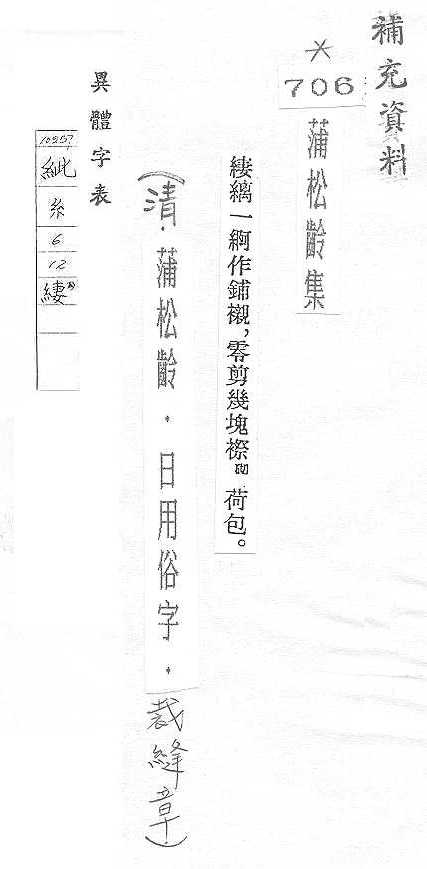 補充資料
＊
706
蒲松齡集
縷縭一作鋪襯，零剪幾塊荷包。
（清．蒲松齡．日用俗字．裁縫章）
異體字表
10257
紪
糸
6
12
縷